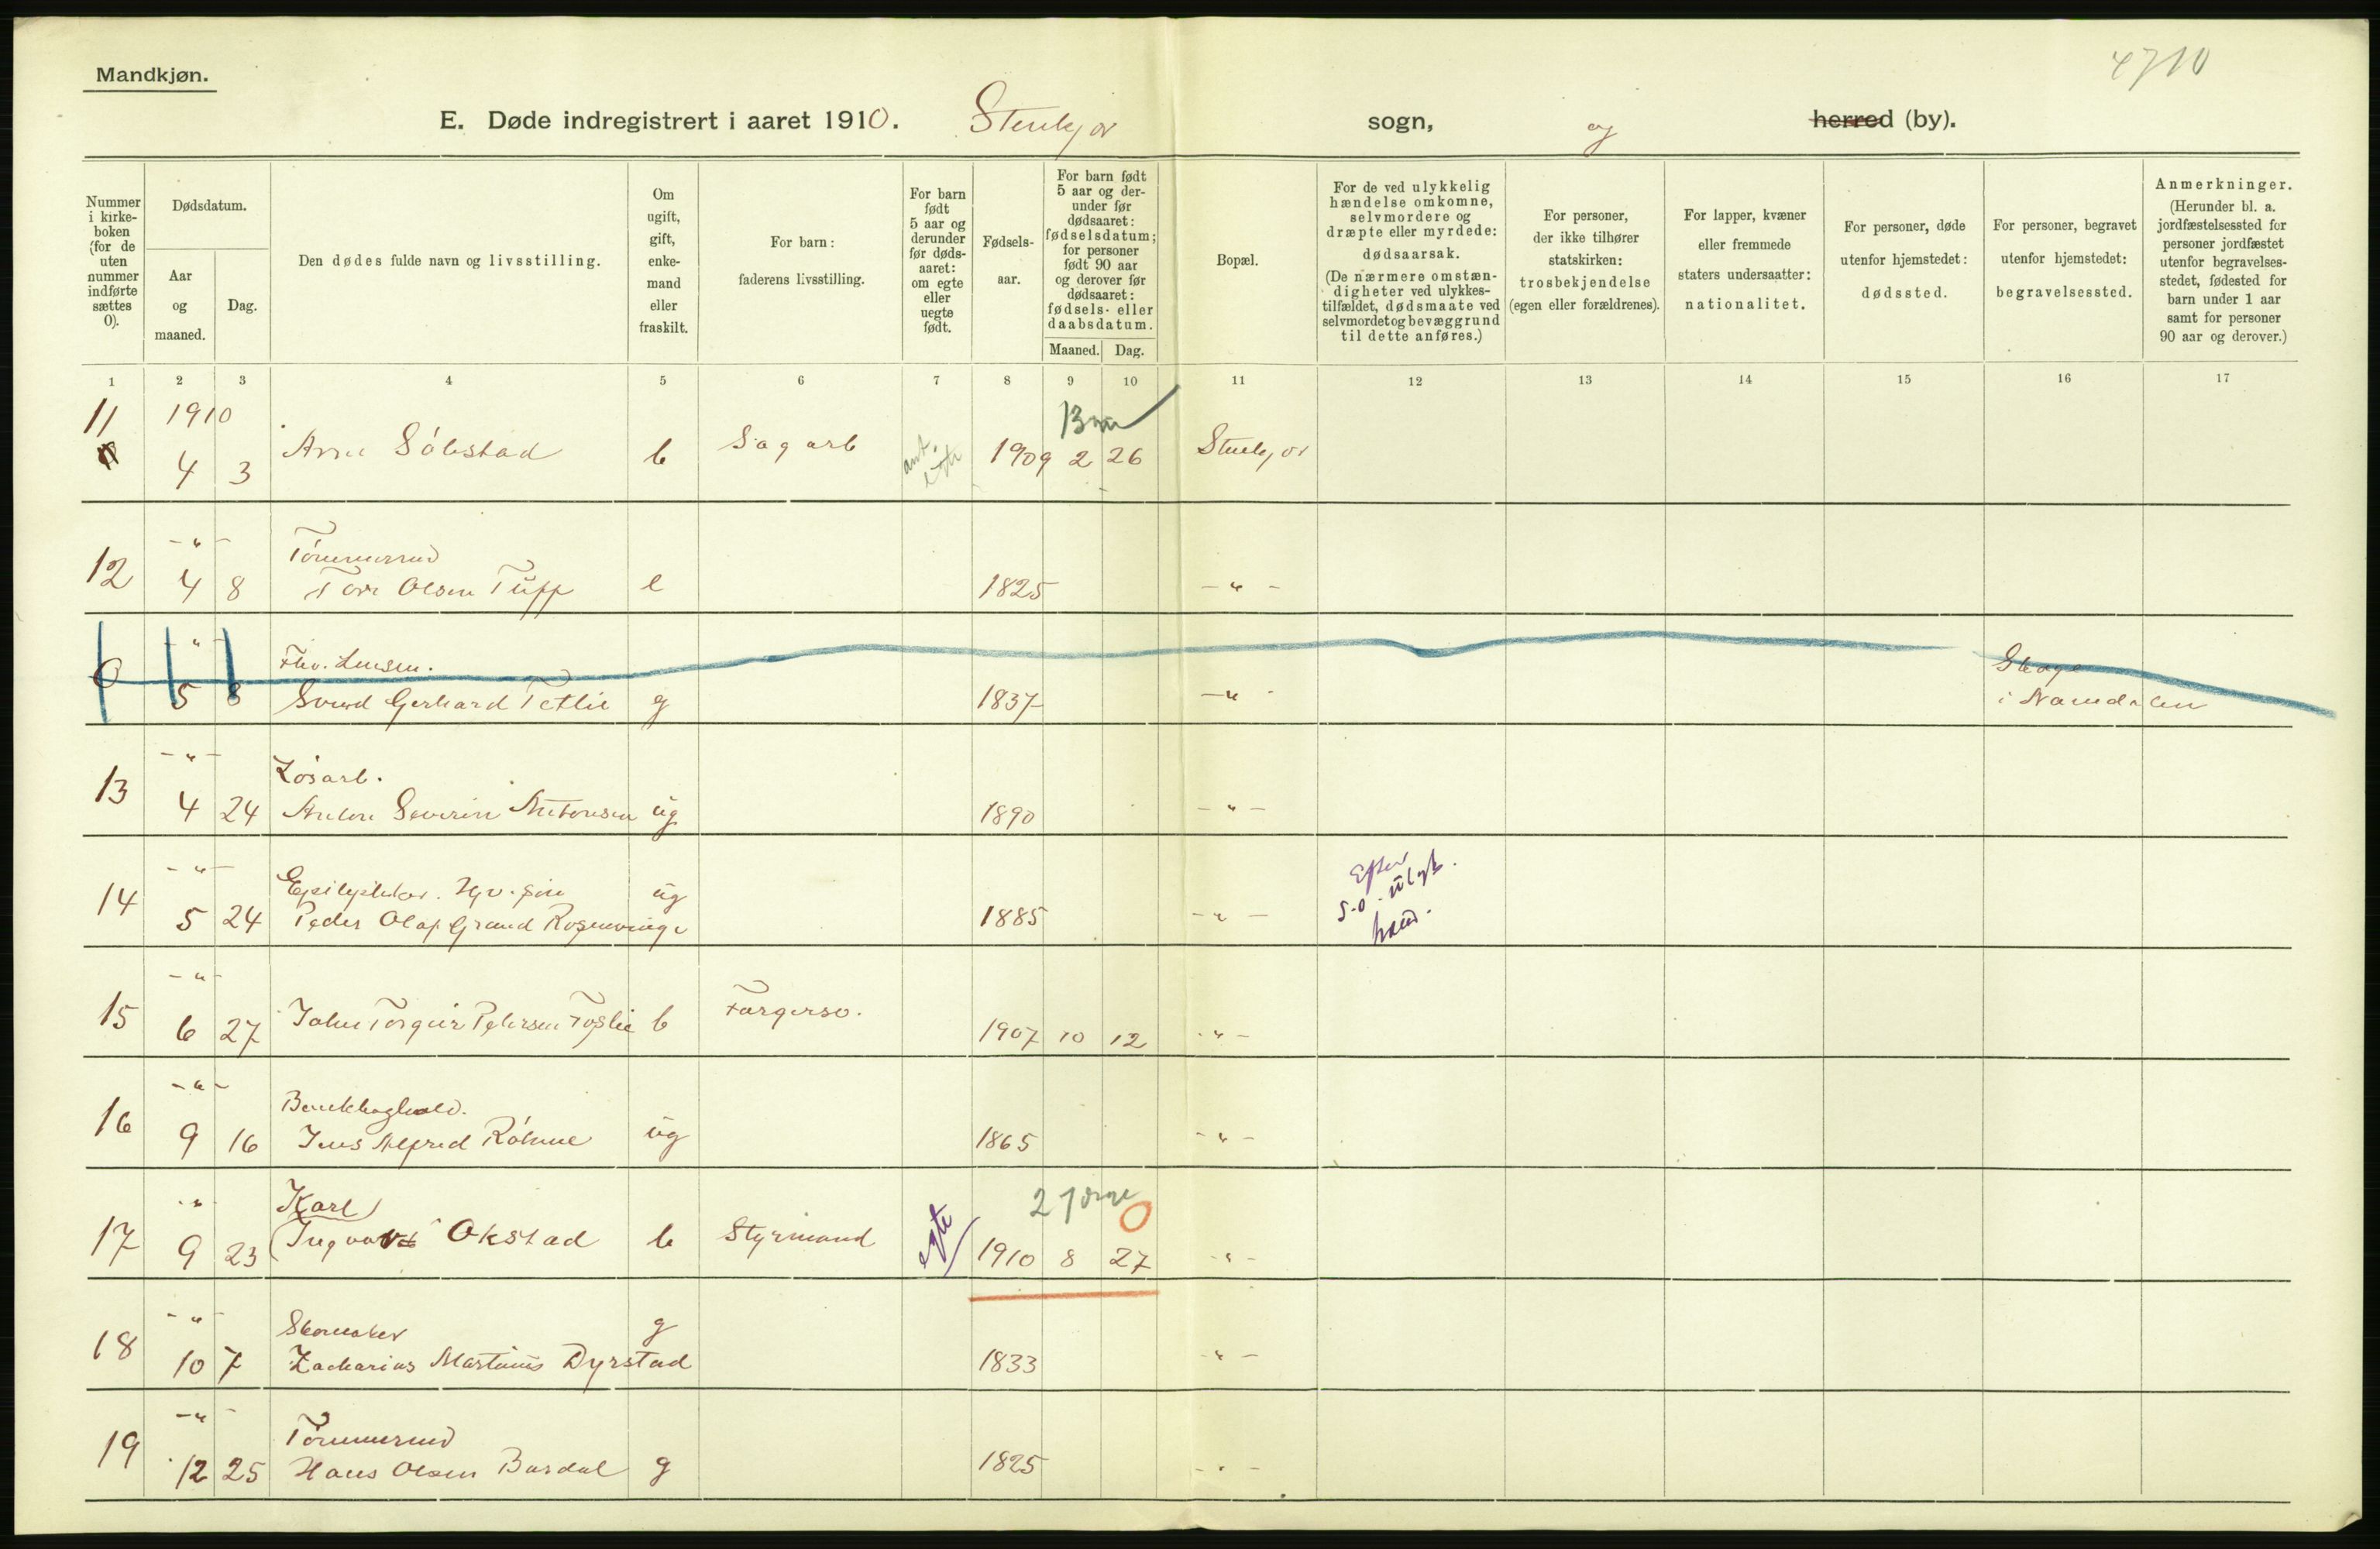 4710
Mandkjøn.
E. Døde indregistrert i aaret 1910. Stenkjør sogn, og herred (by).
Nummer i kirke-boken (for de uten nummer indførte sættes 0).
Dødsdatum.
Aar og maaned.
Dag.
Den dødes fulde navn og livsstilling.
Om ugift, gift, enke-mand eller fraskilt.
For barn: faderens livsstilling.
For barn født 5 aar og derunder før døds-aaret: om egte eller uegte født.
Fødsels-aar.
For barn født 5 aar og der-under før dødsaaret: fødselsdatum; for personer født 90 aar og derover før dødsaaret: fødsels- eller daabsdatum.
Maaned. Dag.
Bopæl.
For de ved ulykkelig hændelse omkomne, selvmordere og dræpte eller myrdede: dødsaarsak.
(De nærmere omstæn-digheter ved ulykkes-tilfældet, dødsmaate ved selvmordet og bevæggrund til dette anføres.)
For personer, der ikke tilhører statskirken: trosbekjendelse (egen eller forældrenes).
For lapper, kvæner eller fremmede staters undersaatter: nationalitet.
For personer, døde utenfor hjemstedet: dødssted.
For personer, begravet utenfor hjemstedet: begravelsessted.
Anmerkninger. (Herunder bl. a. jordfæstelsessted for personer jordfæstet utenfor begravelses-stedet, fødested for barn under 1 aar samt for personer 90 aar og derover.)
1 2 3 4 5 6 7 8 9 10 11 12 13 14 15 16 17
11 1910
4 3 Arne Sølistad b Sagarb ant. egte 1909 2 26 Stenkjør
-"- Tømmermd
12 4 8 Tore Olsen Tüff e 1825 -"-
" Fhv. Lensm.
0 5 8 Svend Gerhard Tetlie g 1837 -"- Skage
i Namdalen
-"- Løsarb.
13 4 24 Anton Severin Antonsen ug 1890 -"-
-"- Epileptiker. ug Efter
14 5 24 Peder Olaf Grand Rosenvinge 1885 -"-
-"- Fargerso.
15 6 27 John Torgeir Petersen Foslie b 1907 10 12 -"-
-"- Bankboghold.
16 9 16 Jens Alfred Røhme ug 1865 -"-
-"- Karl
17 9 23 Ingvar Okstad b Styrmand egte 1910 8 27 -"-
-"- Skomaker g
18 10 7 Zacharias Martinus Dyrstad 1833 -"-
-"- Tømmermd
19 12 25 Hans Olsen Bardal g 1825 -"-